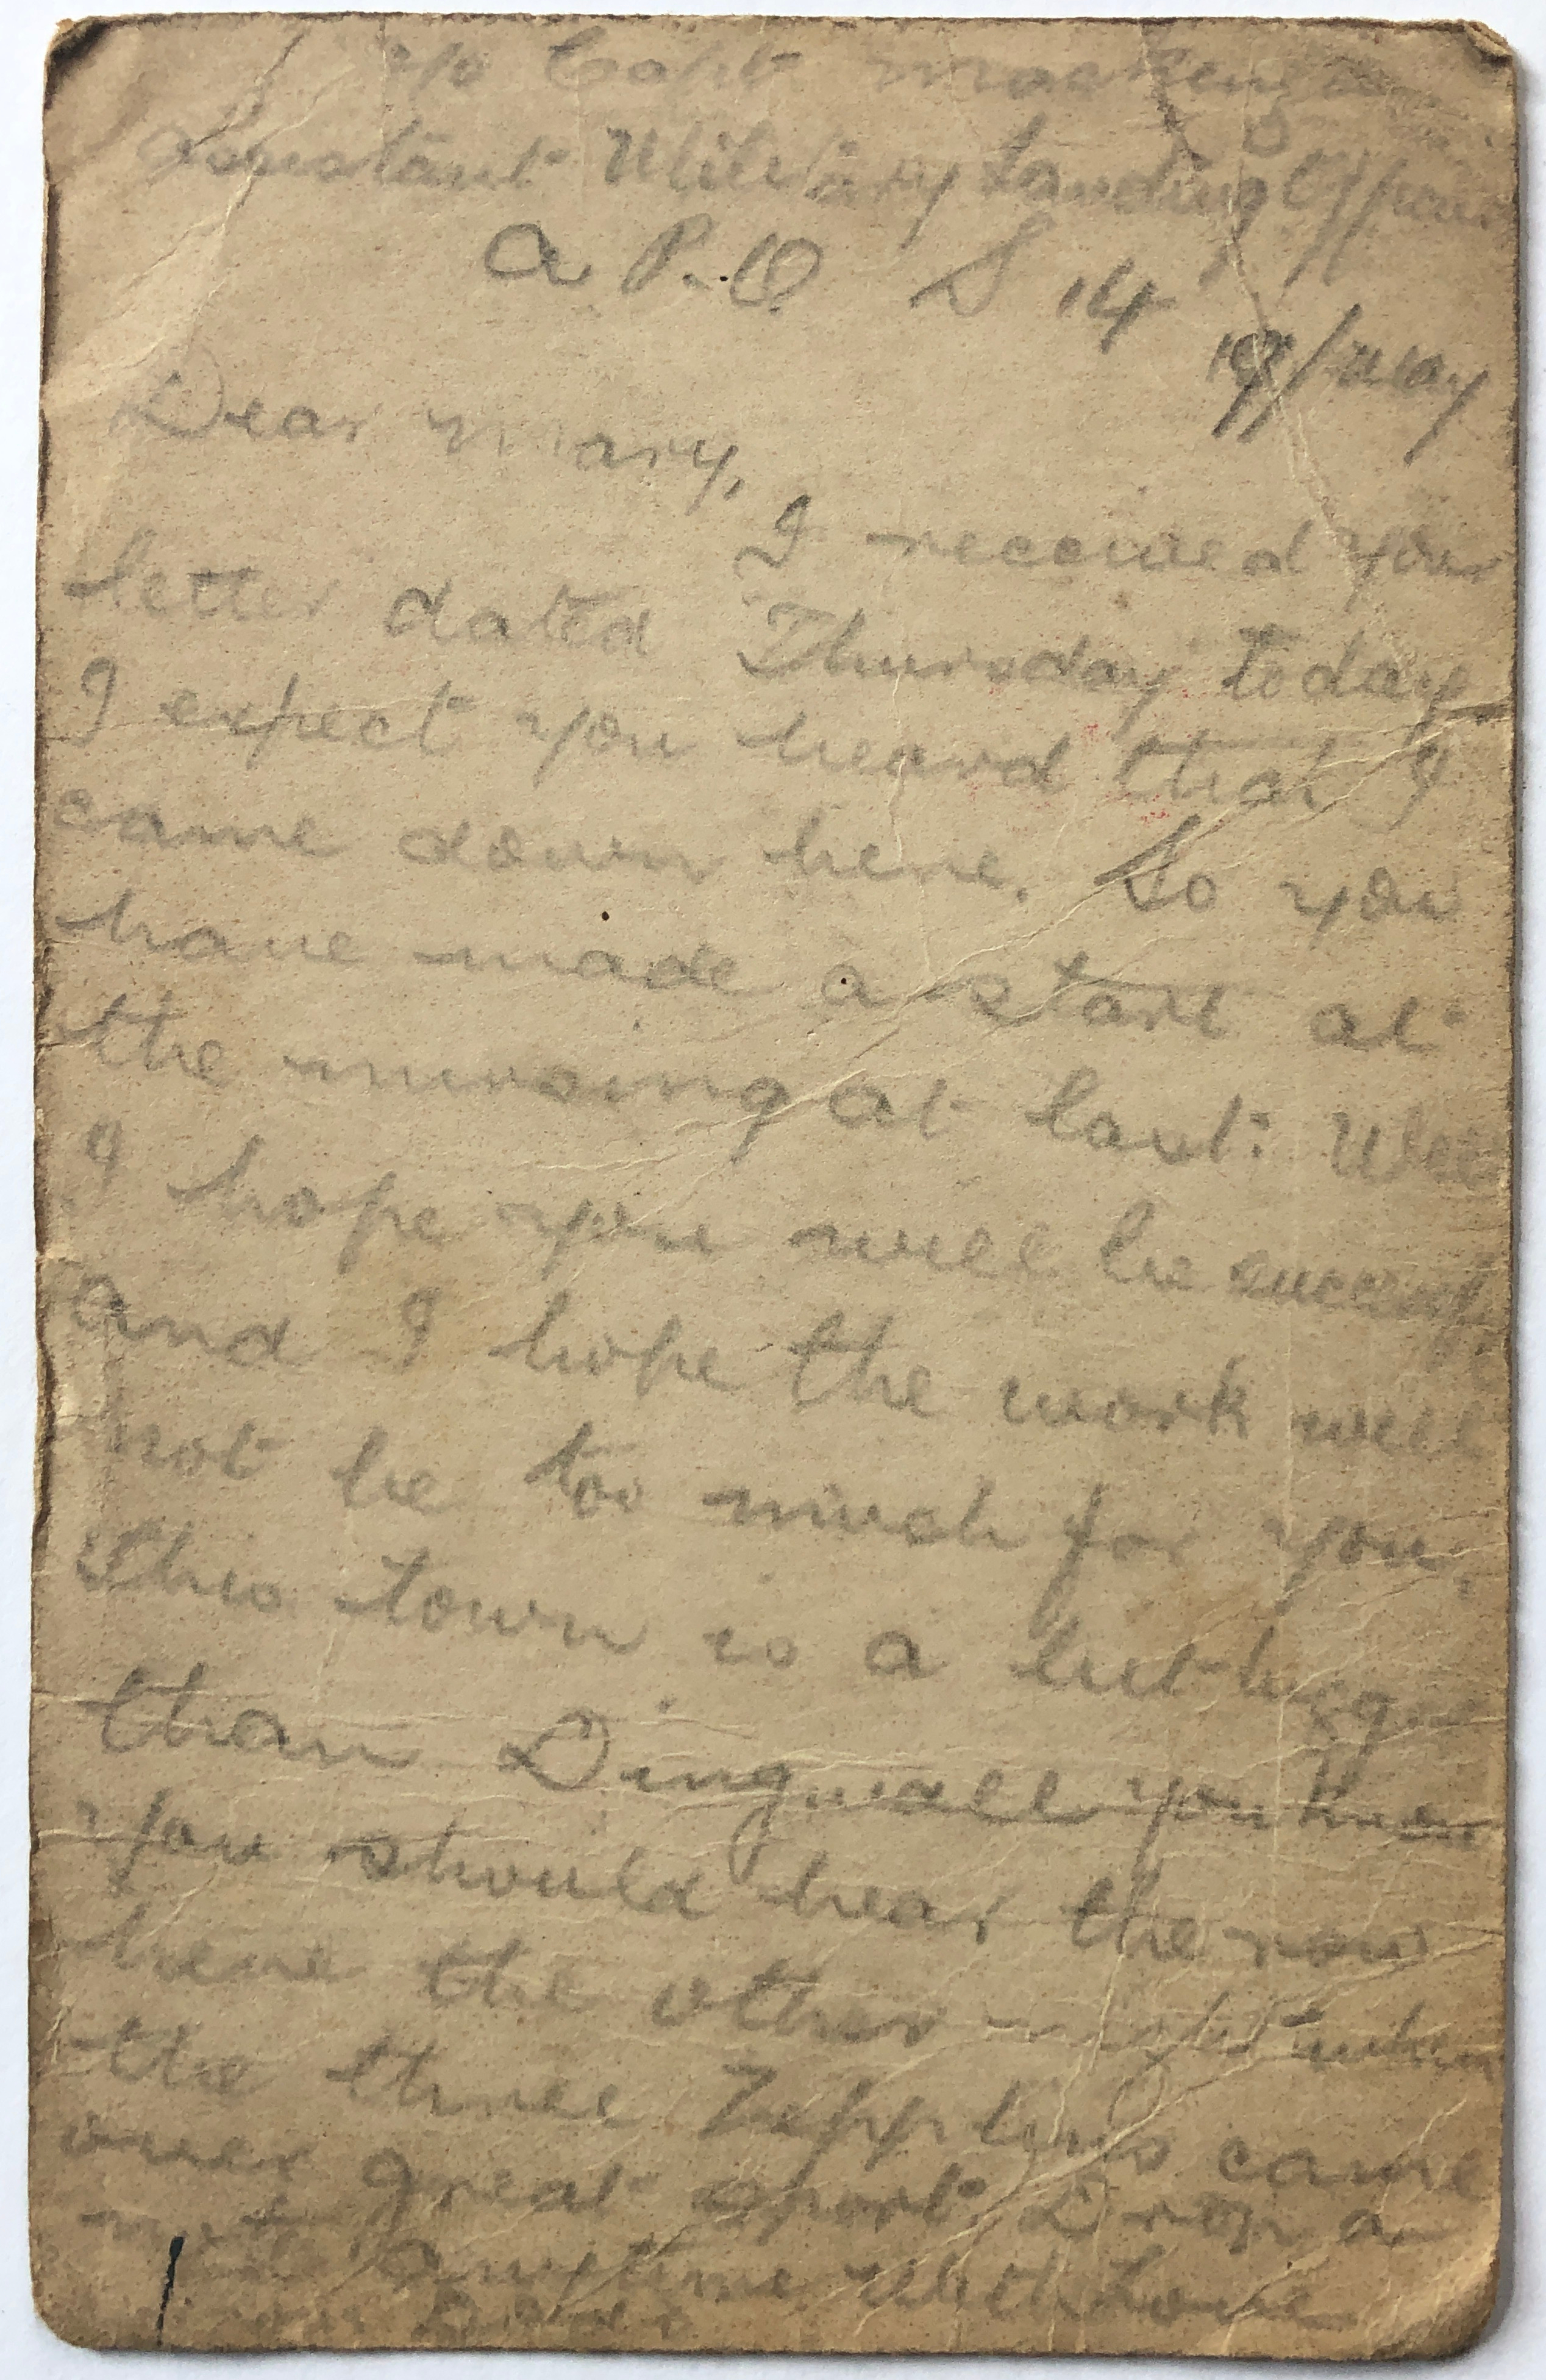 c/o Capt Mackenzie
Assistant Military Landing Officer
A P.O S 14
19/May
Dear Mary,
I received your
letter dated Thursday today
I expect you heard that I
came down here. So you
have made a start at
the nursing at last: Well
I hope you will be successful
And I hope the work will
not be too much for you.
This town is a bit bigger
than Dingwall you know
You should hear the row
here the other night when
the three Zepplins came
over great sport. Drop a
note anytime With Love